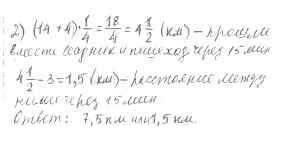 2) (14 + 4) · 1/4 = 18/4 = 4 1/2 (км) – прошли
вместе всадник и пешеход через 15 мин
4 1/2 – 3 = 1,5 (км) – расстояние между
ними через 15 мин.
Ответ: 7,5 км или 1,5 км.